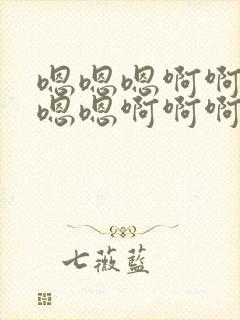 嗯嗯嗯啊啊
嗯嗯啊啊啊
七薇蓝